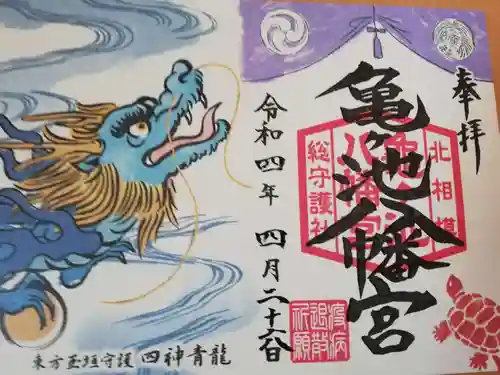 奉拝
亀ヶ池八幡宮
北相模
総守護社
令和四年 四月二十六日
疫病
退散
祈願
東方玉垣守護 四神青龍